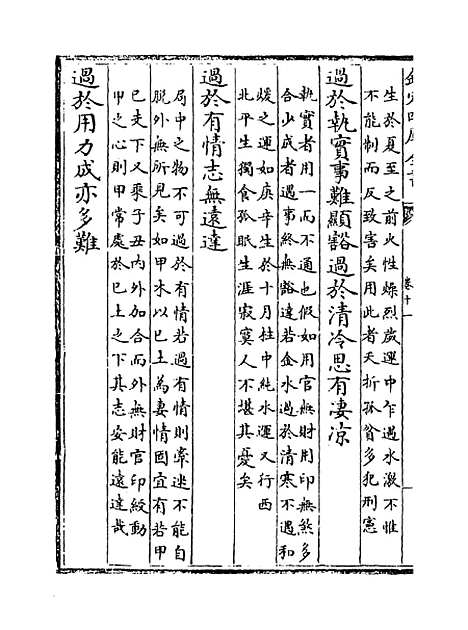 欽定四庫全書
卷十一
生於夏至之前火性燥烈歲運中乍遇水激不惟
不能制而反致害矣用此者夭折孤貧多犯刑憲
過於執實事難顯豁過於清冷思有凄凉
執實者用一而不通也假如用官無財用印無煞多
合少成者遇事終無豁達若金水過於清寒不遇和
煖之運如庚辛生於十月柱中純水運又行西
北平生獨食孤眠生涯寂寞人不堪其憂矣
過於有情志無遠達
局中之物不可過於有情若過有情則牽迷不能自
脱外無所見矣如甲木以巳土為妻情固宜有若甲
巳支下又乘子丑内外加合而外無財官印綬動
甲之心則甲常處於巳土之下其志安能遠達哉
過於用力成亦多難